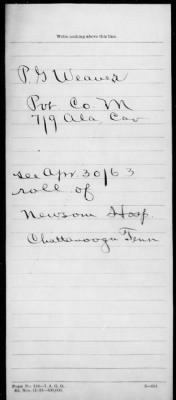 Write nothing above this line.
P. G. Weaver
Pvt Co. M
7/9 Ala Cav
See Apr. 30/63
roll of
Newsom Hosp.
Chattanooga Tenn